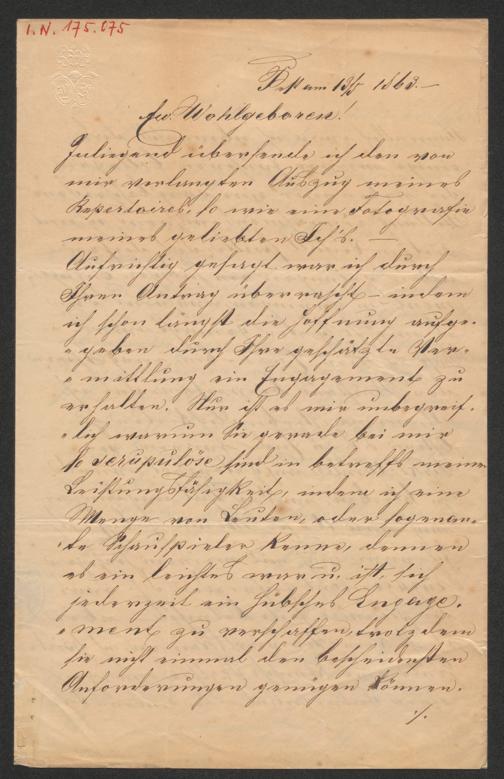 I.N. 175.075
Pest am 13/5 1863.–
Euer Wohlgeboren!
Zuliegend übersende ich den von
mir verlangten Auszug meines
Repertoires, so wie eine Fotografie
meines geliebten Ich's. —
Aufrichtig gesagt war ich durch
Ihren Antrag überrascht – indem
ich schon längst die Hoffnung aufge-
geben durch Ihre geschätzte Ver-
mittlung ein Engagement zu
erhalten. Nur ist es mir unbegreif-
lich warum Sie gerade bei mir
so scrupulöse sind in betreffs meiner
Leistungsfähigkeit, indem ich eine
Menge von Leuten, oder sogenan-
te Schauspieler kenne, dennen
es ein leichtes war u. ist, sich
jederzeit ein hübsches Engage-
ment zu verschaffen, trotzdem
sie nicht einmal den bescheidensten
Anforderungen genügen können.
./.